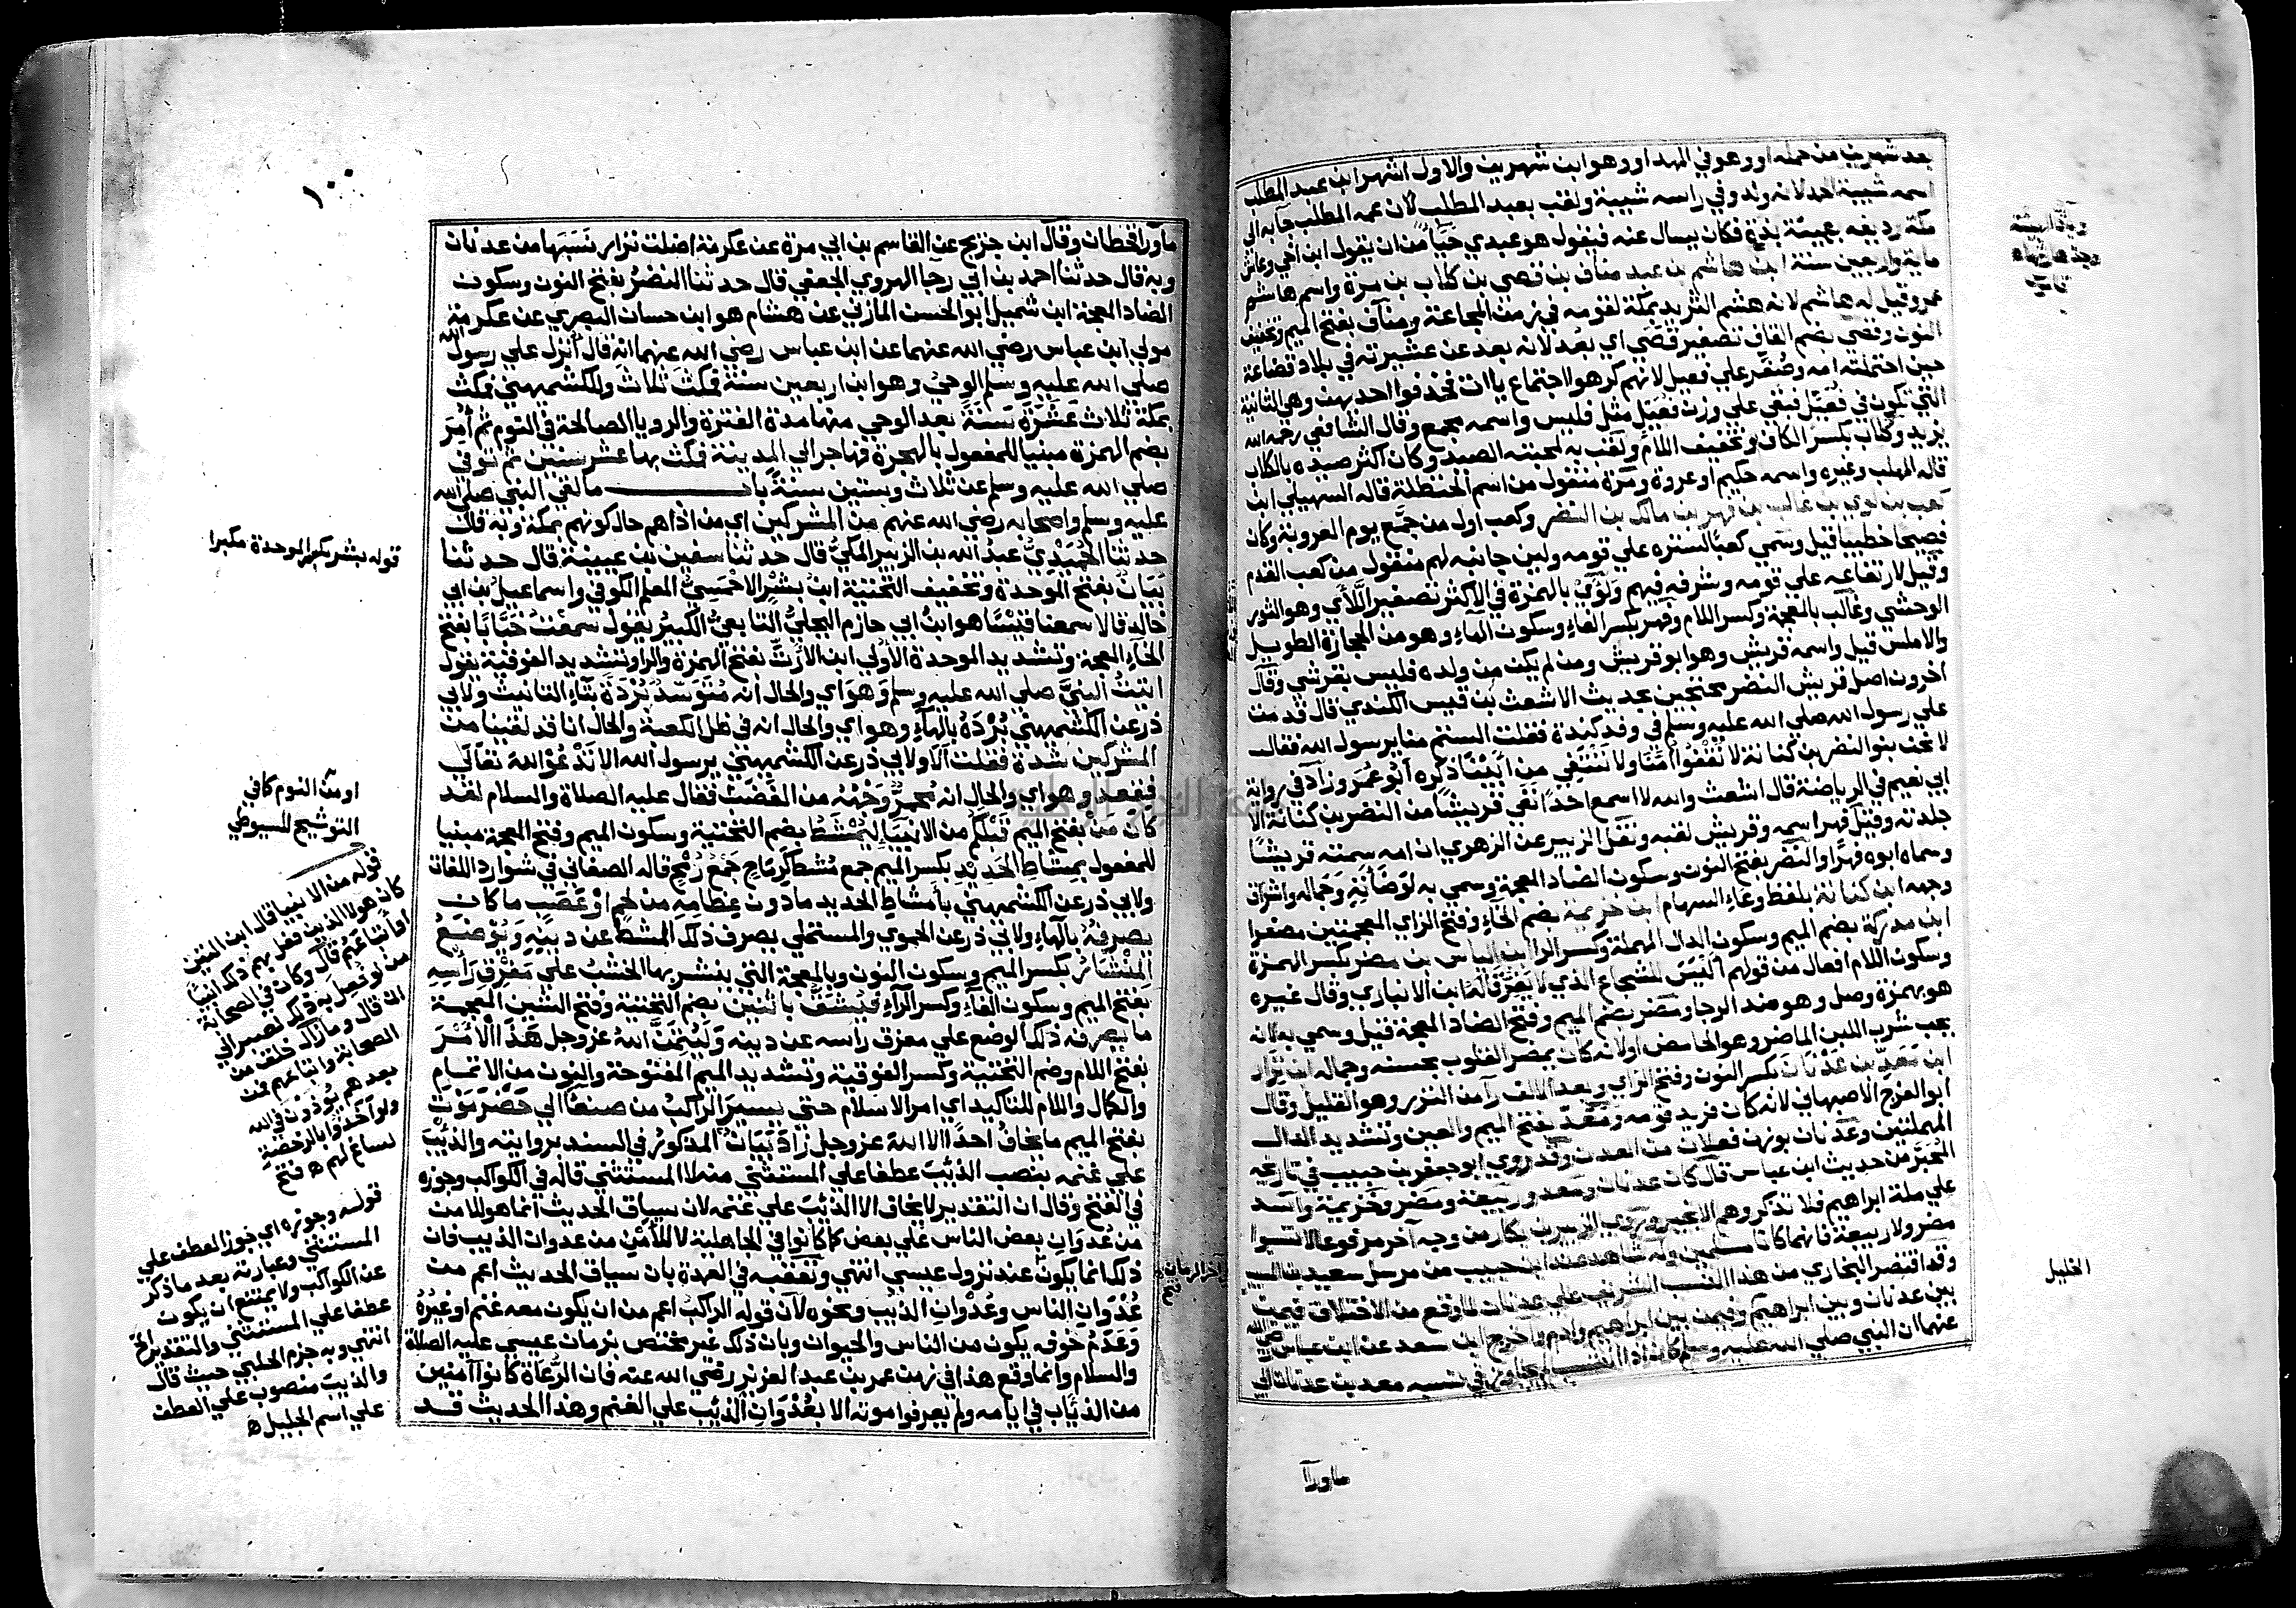 بعد شهرين من حمله او وهو في المهد او وهو ابن شهرين والاول اشهر ابن عبد المطلب
اسمه شيبة الحمد لانه ولد وفي راسه شيبة ولقب بعبد المطلب لان عمه المطلب جاء به الى
مكة رديفه بهيئة بذة فكان يسال عنه فيقول هو عبدي حياً من ان يقول ابن اخي وعاش
ماية واربعين سنة ابن هاشم بن عبد مناف بن قصي بن كلاب بن مرة واسم هاشم
عمرو وقيل له هاشم لانه هشم الثريد بمكة لقومه في زمن المجاعة ومناف بفتح الميم وتخفيف
النون وقصي بضم القاف تصغير قصي اي بعد لانه بعد عن عشيرته في بلاد قضاعة
حين احتملته امه وصغر علي فعيل لانهم كرهوا اجتماع ياات فحذفوا احديهن وهي الثانية
التي تكون في فعيل فبقي علي وزن فعيل مثل فليس واسمه مجمع وقال الشافعي رحمه الله
يزيد وكلاب بكسر الكاف وتخفيف اللام ولقب به لمحبته الصيد وكان اكثر صيده بالكلاب
قاله المهلب وغيره واسمه حكيم او عروة ومرة منقول من اسم الحنظلة قاله السهيلي ابن
كعب بن لوي بن غالب بن فهر بن مالك بن النضر وكعب اول من جمع يوم العروبة وكان
فصيحا خطيبا قيل وسمي كعبا لستره علي قومه ولين جانبه لهم منقول من كعب القدم
وقيل لارتفاعه علي قومه وشرفه فيهم ولؤي بالهمزة في الاكثر تصغير اللأي وهو الثور
الوحشي وغالب بالمعجمة وكسر اللام وفهر بكسر الفاء وسكون الهاء وهو من الحجارة الطويل
والاملس قيل واسمه قريش وهو ابو قريش ومن لم يكن من ولده فليس بقرشي وقال
اخرون اصل قريش النضر محتجين بحديث الاشعث بن قيس الكندي قال قدمت
علي رسول الله صلي الله عليه وسلم في وفد كندة فقلت الستم منا يرسول الله فقال
لا نحن بنو النضر بن كنانة لا نقفوا امنا ولا ننتفي من ابينا ذكره ابو عمر وزاد في رواية
ابي نعيم في الرياضة قال اشعث والله لا اسمع احدا نفي قريشا من النضر بن كنانة الا
جلدته وقيل فهر اسمه وقريش لقبه ونقل الزبير عن الزهري ان امه سمته قريشا
وسماه ابوه فهرا والنضر بفتح النون وسكون الضاد المعجمة وسمي به لوضاءته وجماله واشراق
وجهه ابن كنانة بلفظ وعاء السهام ابن خزيمة بضم الخاء وفتح الزاي المعجمتين مصغرا
ابن مدركة بضم الميم وسكون الدال المهملة وكسر الرا ابن الياس بن مضر بكسر الهمزة
وسكون اللام افعال من قولهم اليس للشجاع الذي لا يفر قاله ابن الانباري وقال غيره
هو بهمزة وصل وهو ضد الرجا ومضر بضم الميم وفتح الضاد المعجمة قيل وسمي به لانه
يحب شرب اللبن الماضر وهو الحامض او لانه كان يمضر القلوب بحسنه وجماله ابن نزار
ابن معد بن عدنان بكسر النون وفتح الزاي وبعد الالف را من النزر وهو القليل وقال
ابو الفرج الاصبهاني لانه كان فريد قومه ومعد بفتح الميم والعين وتشديد الدال
المهملتين وعدنان بوزن فعلان من العدن وقد روي ابو جعفر بن حبيب في تاريخه
المحبر من حديث ابن عباس قال كان عدنان ومعد وربيعة ومضر وخزيمة واسد
علي ملة ابراهيم فلا تذكروهم الا بخير وروي الزبير بن بكار من وجه آخر مرفوعا لا تسبوا
مضر ولا ربيعة فانهما كانا مسلمين وله شاهد عند ابن حبيب من مرسل سعيد بن المسيب
وقد اقتصر البخاري من هذا النسب الشريف علي عدنان لما وقع من الاختلاف فيمن
بين عدنان وبين ابراهيم وفيمن بين ابراهيم وادم واخرج ابن سعد عن ابن عباس رضي الله
عنهما ان النبي صلي الله عليه وسلم كان اذا انتسب لم يجاوز في نسبه معد بن عدنان
الخليل
ماورآ
١٠٠
ماورا قحطان وقال ابن جريج عن القاسم بن ابي مرة عن عكرمة اضلت نزار نسبها من عدنان
وبه قال حدثنا احمد بن ابي رجا الهروي الجعفي قال حدثنا النضر بفتح النون وسكون
الضاد المعجمة ابن شميل ابو الحسن المازني عن هشام هو ابن حسان البصري عن عكرمة
مولي ابن عباس رضي الله عنهما عن ابن عباس رضي الله عنهما انه قال أنزل علي رسول الله
صلي الله عليه وسلم الوحي وهو ابن اربعين سنة فمكث ثلاث وللكشميهني فمكث
بمكة ثلاث عشرة سنة بعد الوحي منها مدة الفترة والرويا الصالحة في النوم ثم أمر
بضم الهمزة مبنيا للمفعول بالهجرة فهاجر الي المدينة فمكث بها عشر سنين ثم توفي
صلي الله عليه وسلم عن ثلاث وستين سنة باب ما لقي النبي صلي الله
عليه وسلم واصحابه رضي الله عنهم من المشركين اي من اذاهم حال كونهم بمكة وبه قال
حدثنا الحميدي عبد الله بن الزبير المكي قال حدثنا سفين بن عيينة قال حدثنا
بيان بفتح الموحدة وتخفيف التحتية ابن بشر الاحمسي المعلم الكوفي واسماعيل بن ابي
خالد قالا سمعنا قيسا هو ابن ابي حازم البجلي التابعي الكبير يقول سمعت خبابا بفتح
الخاء المعجمة وتشديد الموحدة الاولي ابن الارت بفتح الهمزة والرا وتشديد الفوقية يقول
اتيت النبي صلي الله عليه وسلم وهو اي والحال انه متوسد بردة بتاء التانيث ولابي
ذر عن الكشميهني برده بالهاء وهو اي والحال انه في ظل الكعبة والحال انا قد لقينا من
المشركين شدة فقلت ألا ولابي ذر عن الكشميهني يرسول الله الا تدعو الله تعالي
فقعد وهو اي والحال انه محمر وجهه من الغضب فقال عليه الصلاة والسلام لقد
كان من بفتح الميم قبلكم من الانبيا ليمشط بضم التحتية وسكون الميم وفتح المعجمة مبنيا
للمفعول بمشاط الحديد بكسر الميم جمع مشط كرماح جمع رمح قاله الصغاني في شوارد اللغات
ولابي ذر عن الكشميهني بأمشاط الحديد ما دون عظامه من لحم او عصب ما كان
يصرفه بالهاء ولابي ذر عن الحموي والمستملي يصرف ذلك المشط عن دينه ويوضع
المنشار بكسر الميم وسكون النون وبالمعجمة التي ينشر بها الخشب علي مفرق راسه
بفتح الميم وسكون الفاء وكسر الراء فيشق باثنين بضم التحتية وفتح الشين المعجمة
ما يصرفه ذلك الوضع علي مفرق راسه عن دينه وليتمن الله عز وجل هذا الأمر
بفتح اللام وضم التحتية وكسر الفوقية وتشديد الميم المفتوحة والنون من الاتمام
والكمال واللام للتاكيد اي امر الاسلام حتي يسير الراكب من صنعا الي حضرموت
بفتح الميم ما يخاف احدا الا الله عز وجل زاد بيان المذكور في السند بروايته والذئب
علي غنمه بنصب الذئب عطفا علي المستثني منه لا المستثني قاله في الكواكب وجوزه
في الفتح وقال ان التقدير لا يخاف الا الذئب علي غنمه لان سياق الحديث انما هو للامن
من عدوان بعض الناس علي بعض كما كانوا في الجاهلية لا للأمن من عدوان الذيب فان
ذلك انما يكون عند نزول عيسي انتهي وتعقبه في العمدة بان سياق الحديث اعم من
عدوان الناس وعدوان الذيب ونحوه لان قوله الراكب اعم من ان يكون معه غنم او غيره
وعدم خوفه يكون من الناس والحيوان وبان ذلك غير مختص بزمان عيسي عليه الصلاة
والسلام وانما وقع هذا في زمن عمر بن عبد العزيز رضي الله عنه فان الرعاة كانوا آمنين
من الذئاب في ايامه ولم يعرفوا موته الا بعدوان الذئب علي الغنم وهذا الحديث قد
قوله بشر بكسر الموحدة مكبرا
او من النوم كما في
التوشيح للسيوطي
قوله من الانبيا قال ابن التين
كان هولا الذين فعل بهم ذلك انبيا
او اتباعهم قال وكان في الصحابة
من لو فعل به ذلك لصبر الي
ان قال وما زال خلق من
الصحابة واتباعهم فمن
بعدهم يؤذون في الله
ولو اخذوا بالرخصة
لساغ لهم ه فتح
قوله وجوزه اي جوز العطف علي
المستثني وعبارته بعد ما ذكر
عن الكواكب ولا يمتنع ان يكون
عطفا علي المستثني والتقدير الخ
انتهي وبه جزم الحلبي حيث قال
والذيب منصوب علي العطف
علي اسم الجليل ه